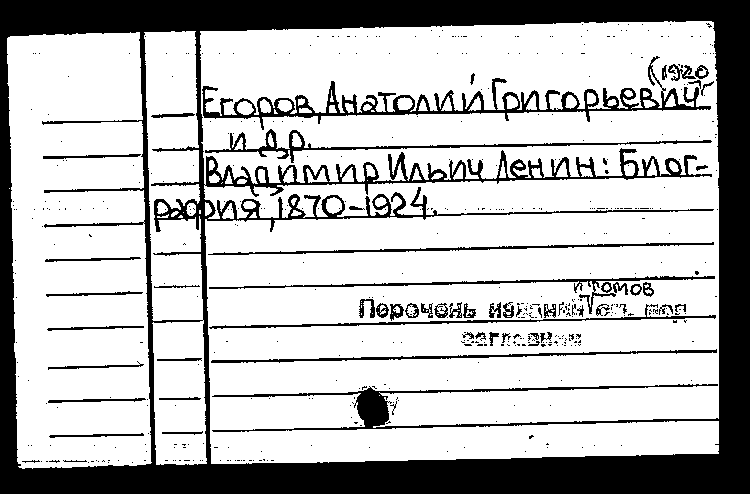 (1920
Егоров, Анатолий Григорьевич
и др.
Владимир Ильич Ленин: Биог-
рафия, 1870-1924.
и томов
Перечень изданий см. под
заглавием